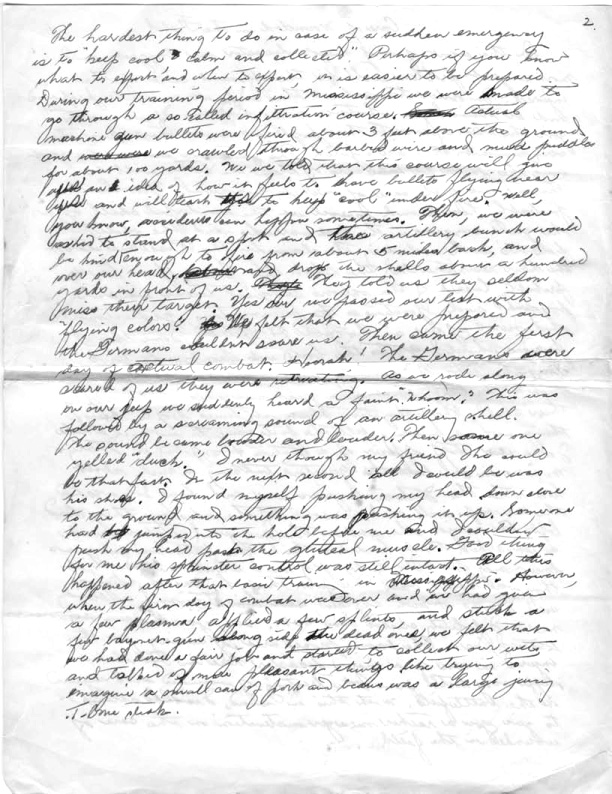 2.
The hardest thing to do in case of a sudden emergency
is to "keep cool & calm and collected" Perhaps if you know
what to effort and when to effort in is easier to be prepared.
During our training period in Mississippi we were made to
go through a so called infiltration course. Actual
machine gun bullets were fired about 3 feet above the ground
and we crawled through barbed wire and mud puddles
for about 100 yards. We we told that this course will give
an idea of how it feels to have bullets flying near
and will teach to keep "cool" under fire. Well,
you know, accidents can happen sometimes. Then, we were
asked to stand at a spot and artillery bunch would
be kind enough to fire from about 5 miles back, and
over our head, and drop the shells about a hundred
yards in front of us. They told us they seldom
miss their target. Yes sir we passed our test with
"flying colors." We felt that we were prepared and
the Germans couldn't scare us. Then came the first
day of actual combat. Hoorah! The Germans were
scared of us they were retreating. As we rode along
on our jeep we suddenly heard a faint "whoom." This was
followed by a screaming sound of an artillery shell.
The sound became louder and louder. Then some one
yelled "duck." I never though my friend Ike could
be that fast. In the next second all I could see was
his shoes. I found myself pushing my head down close
to the ground and something was pushing it up. Someone
had jumped into the hole before me and I couldn't
push my head past the gluteal muscle. Good thing
for me his sphincter control was still intact. All this
happened after that basic training in Mississippi. However,
when the first day of combat was over and we had give
a few plasma applied a few splints, and stuck a
few bayonet gun along side the dead ones, we felt that
we had done a fair job and started to collect our wits
and talked of more pleasant things like trying to
imargine a small can of pork and beans was a large juicy
T-Bone steak.